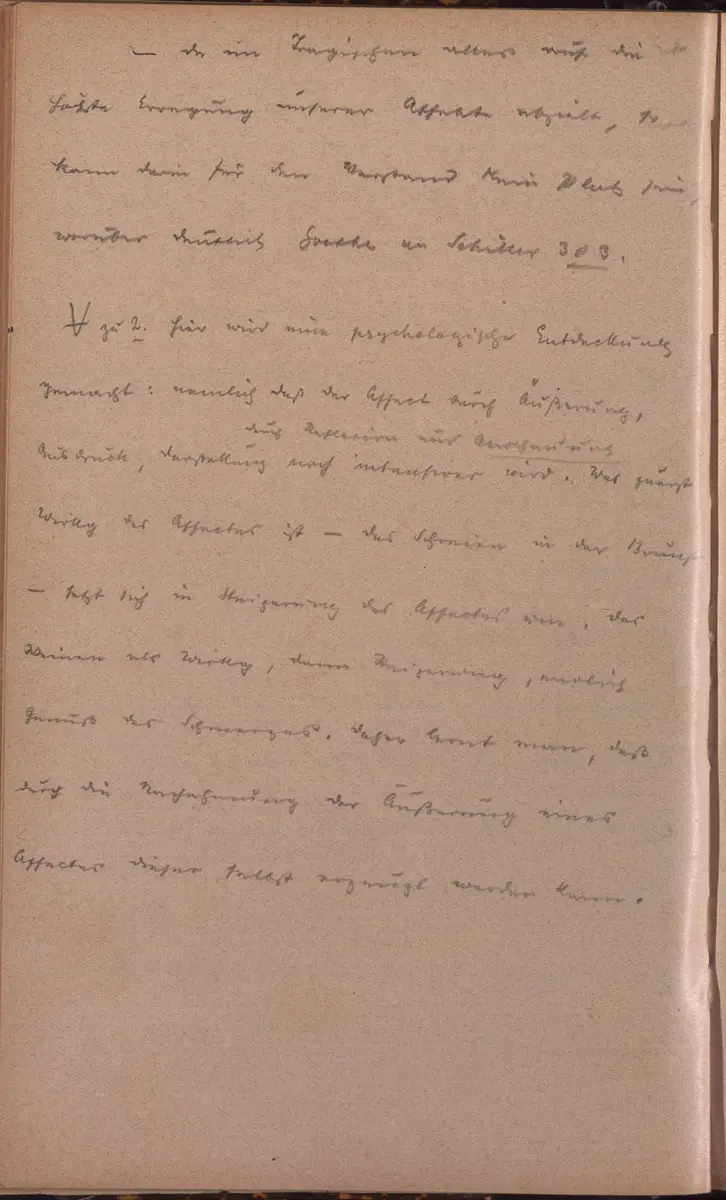 — da im Tragischen alles auf die
höchste Erregung unserer Affekte abzielt, so
kann darin für den Verstand kein Platz sein,
worüber deutlich Goethe an Schiller 383.
V zu 2. hier wird eine psychologische Entdeckung
gemacht: nemlich daß der Affect durch Äußerung,
durch Reflexion und Anschauung
Ausdruck, Darstellung noch intensiver wird. Was zuerst
Wirkg des Affectes ist — das Schreien in der Brunst
— setzt sich in Steigerung des Affectes um. Das
Weinen als Wirkg, dann Steigerung, endlich
Genuß des Schmerzes. Daher lernt man, daß
durch die Nachahmung der Äußerung eines
Affectes dieser selbst erzeugt werden kann.